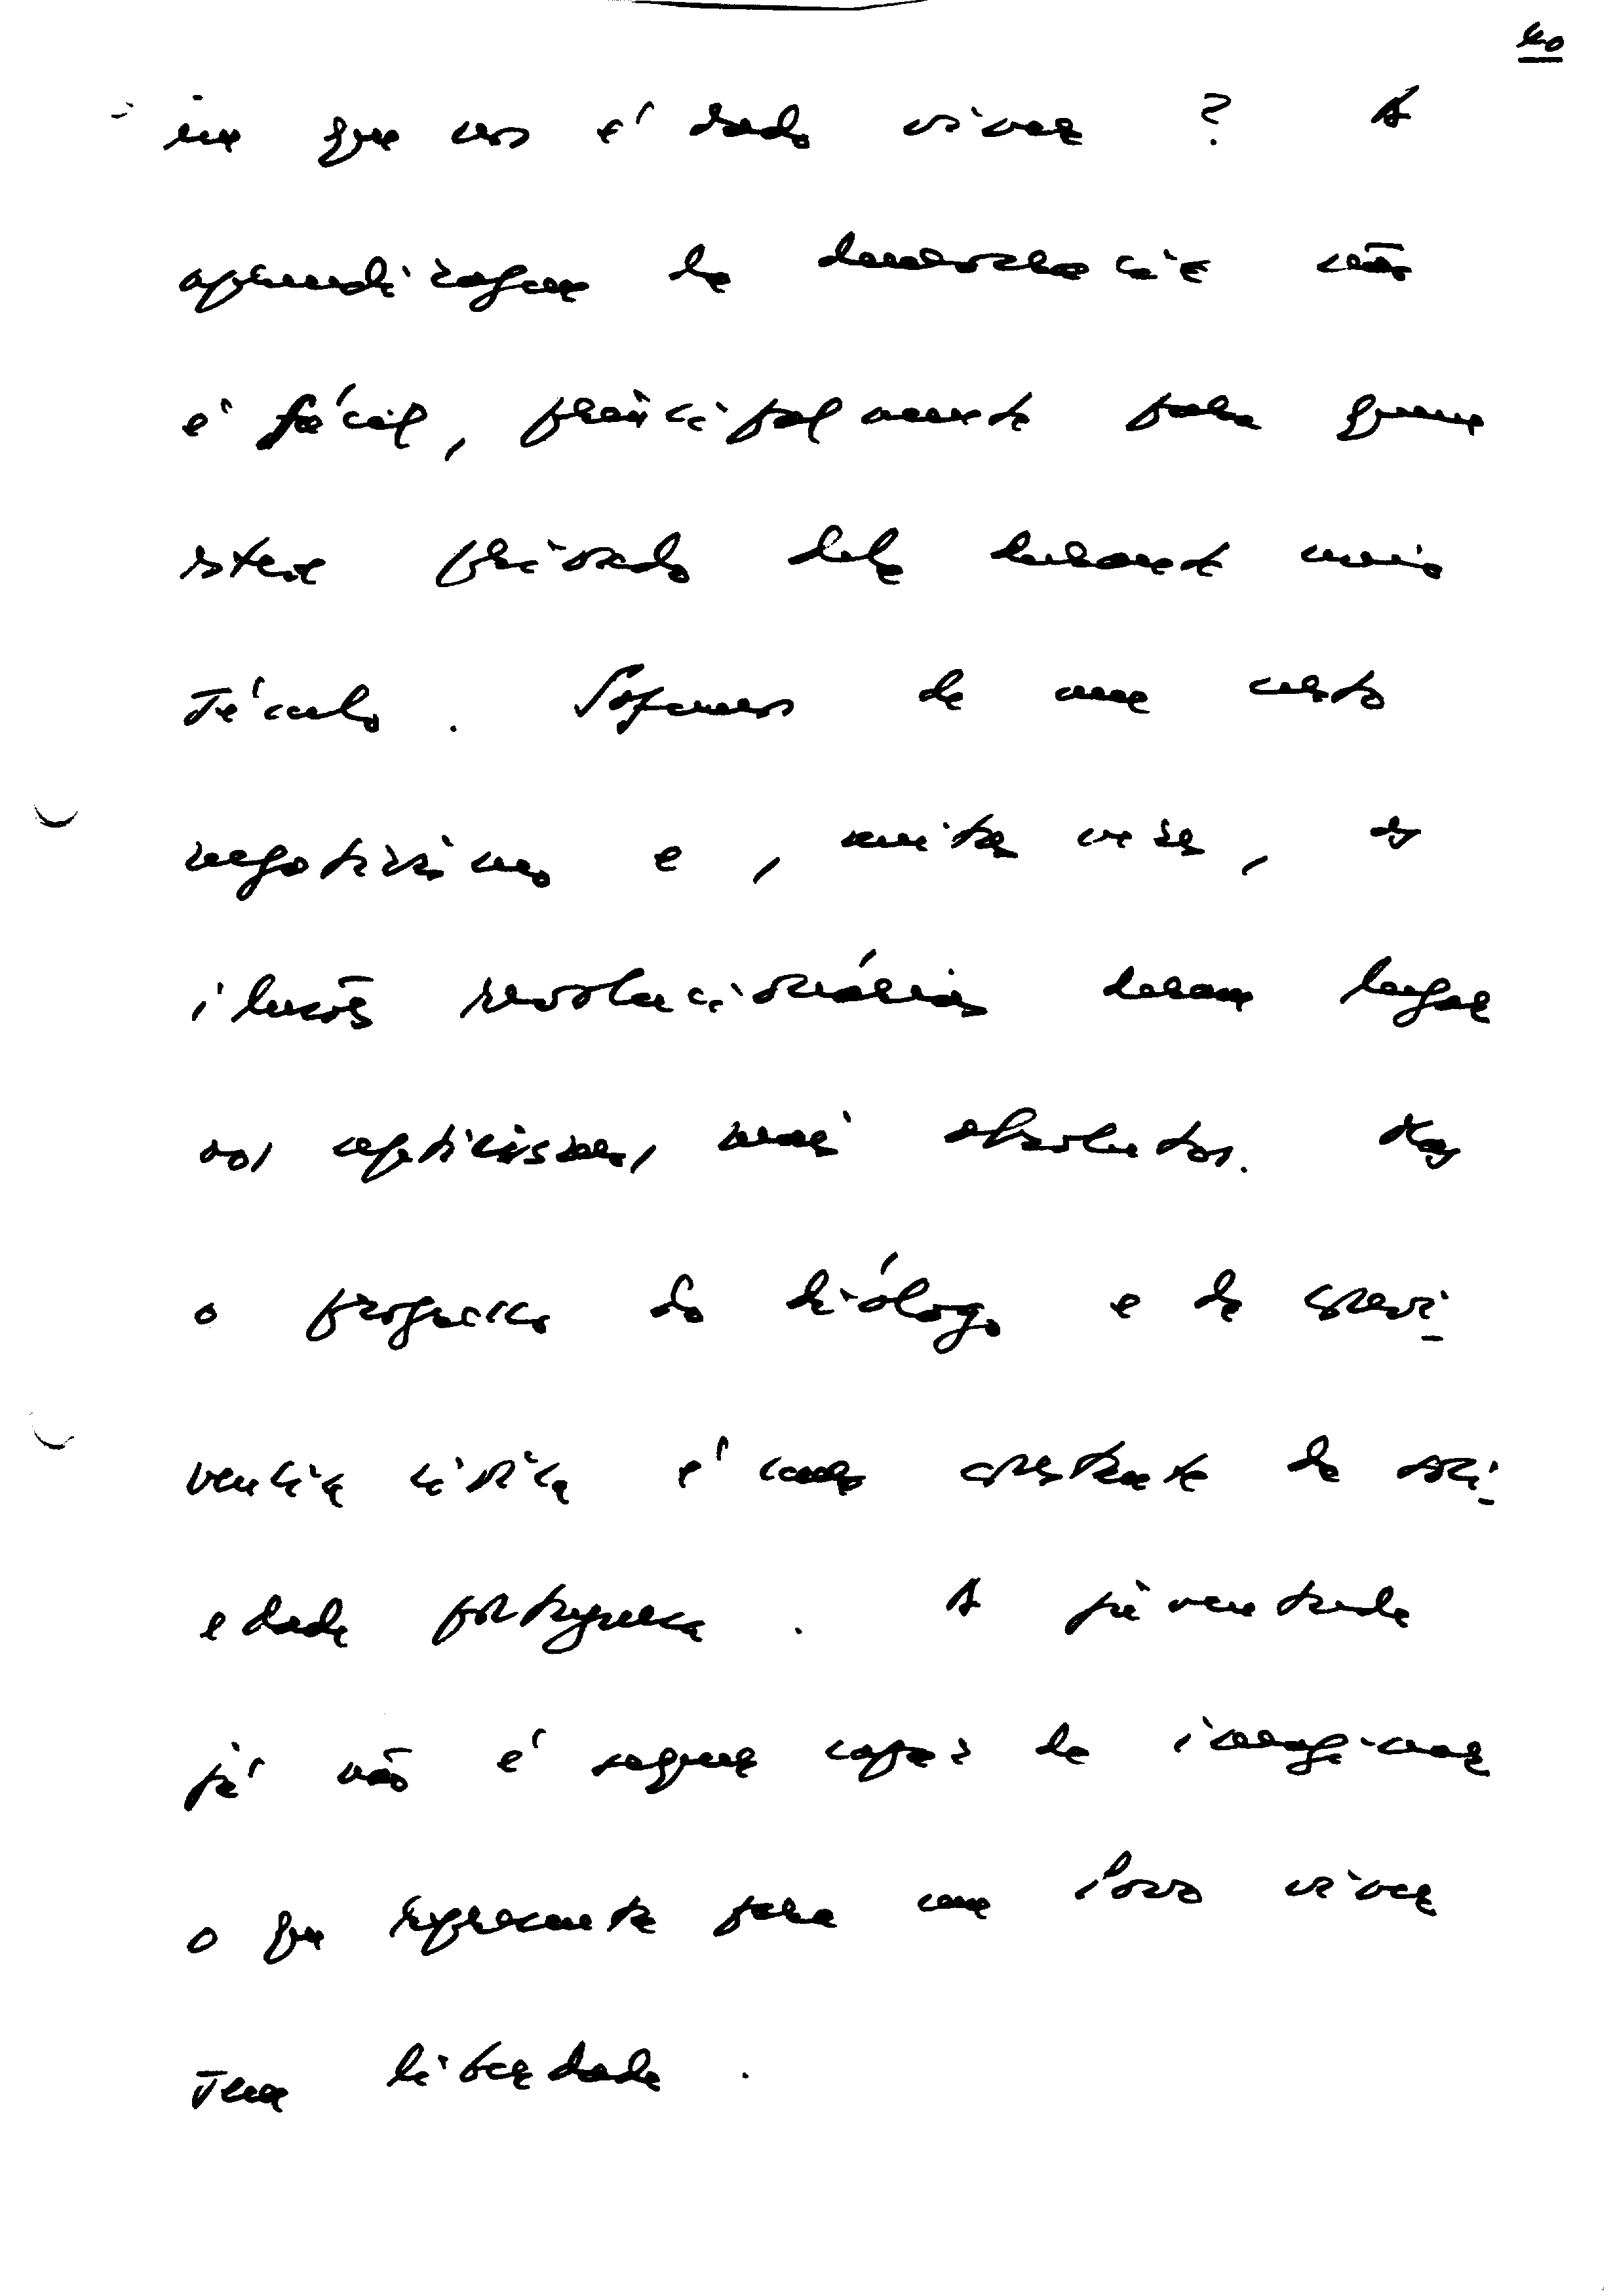 40
em que nos é dado viver? A
aprendizagem da democracia não
é fácil, principalmente para quem
esteve privado dela durante meio
século. Sofremos de um certo
negativismo e, muitas vezes, as
ilusões revolucionárias deram lugar
aos cepticismos, mais absolutos. Mas
o progresso do diálogo e da convi-
vência cívica é uma constante da soci-
edade portuguesa. A juventude
já não é sequer capaz de imaginar
o que representa para um Povo viver
sem liberdade.